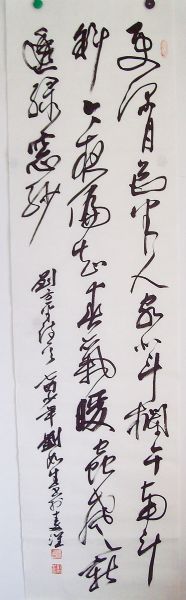 更深月色半人家北斗欄干南斗
斜今夜偏知春氣暖蟲聲新
透綠窓紗
劉方平